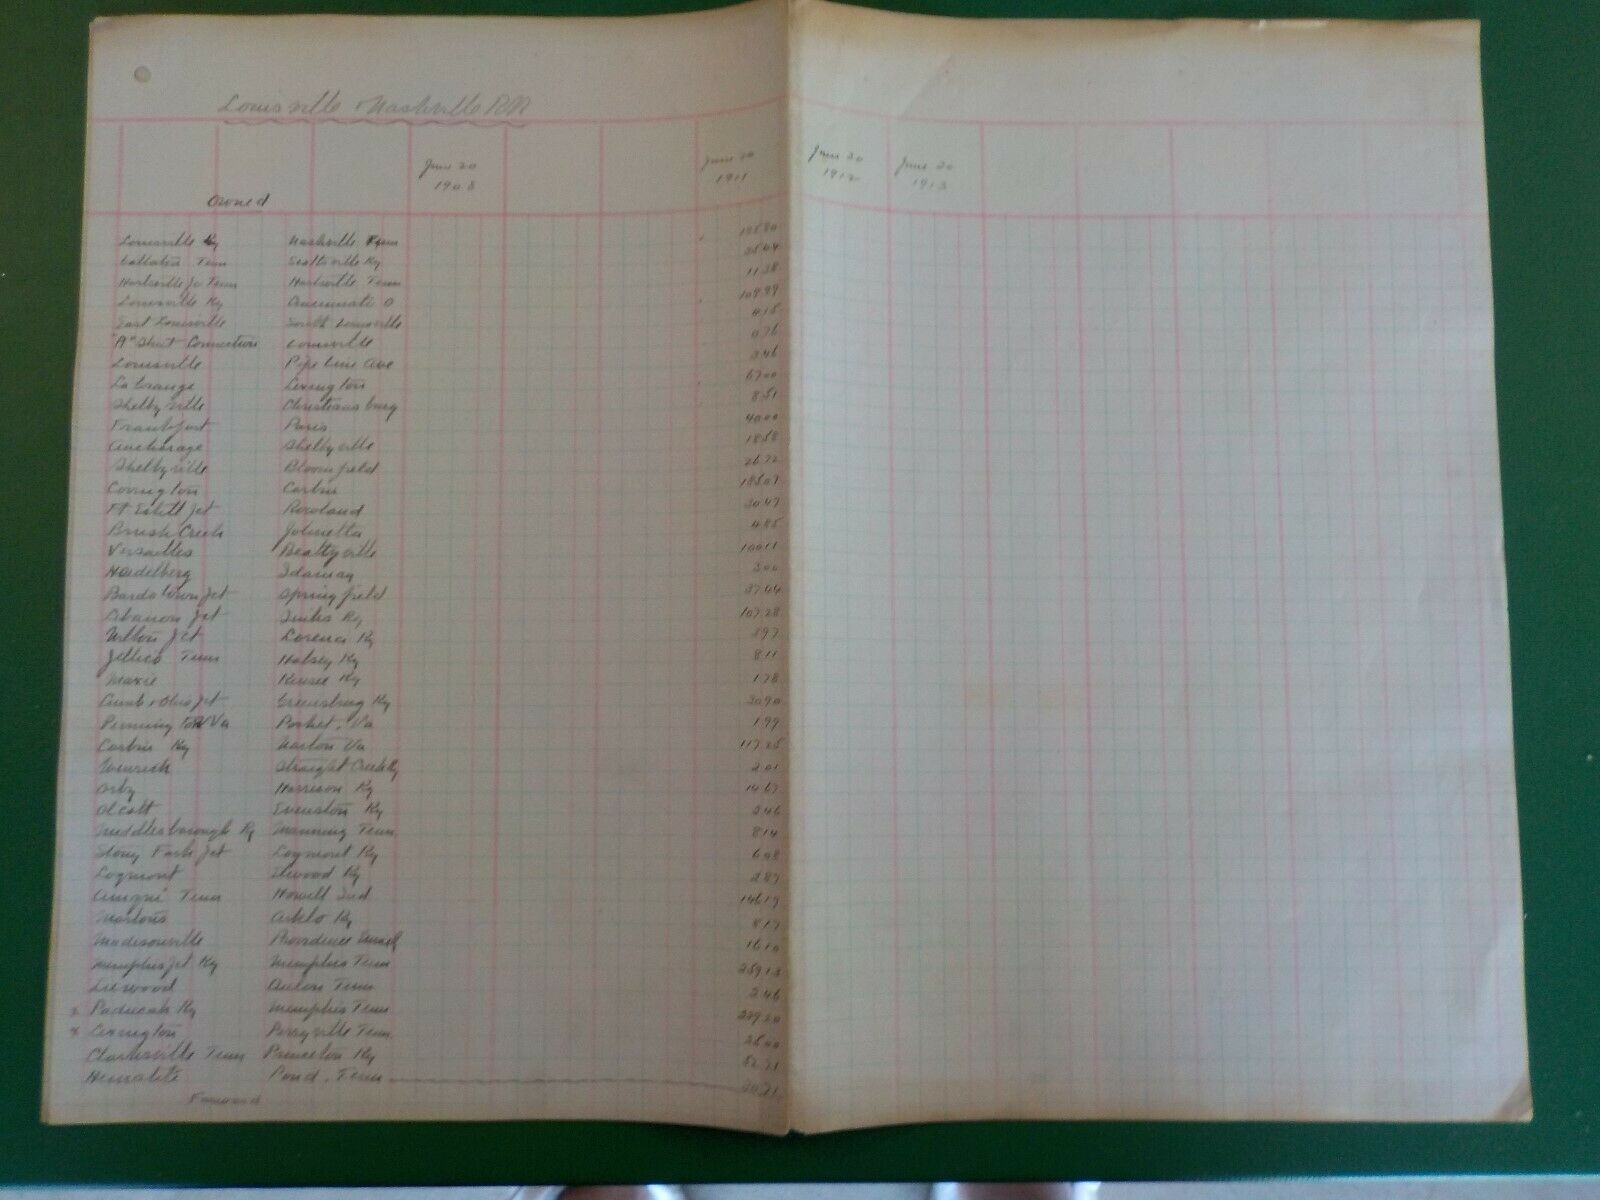 Louisville & Nashville RR
June 30 1908 June 30 1911 June 30 1912 June 30 1913
Owned
Louisville Ky Nashville Tenn
Gallatin Tenn Scottsville Ky 3564
Hartsville Jc Tenn Hartsville Tenn
Louisville Ky Cincinnati O
East Louisville South Louisville
"A" Street Connection Louisville
Louisville Pipe Line Ave 346
La Grange Lexington 6700
Shelbyville Christiansburg 851
Frankfort Paris 4000
Anchorage Shelbyville 1858
Shelbyville Bloomfield 2672
Covington Corbin 18507
Ft Estill Jct Rowland 3047
Brush Creek Johnetta 485
Versailles Beattyville 10011
Heidelberg Idamay 300
Bardstown Jct Springfield 3744
Lebanon Jct Ky 10728
Wilton Jct Ky 597
Jellico Tenn Halsey Ky 811
Ky 178
Cumb & Ohio Jct Greensburg Ky 3090
Pennington Va Pocket, Va 199
Corbin Ky Norton Va 11725
Straight Creek Ky 201
Orby Harrison Ky 1467
Olcott Evanston Ky 346
Middlesborough Ky Manning Tenn 814
Stony Fork Jct Logmont Ky 608
Logmont Ky 287
Tenn Howell Ind 14617
Arklo Ky 817
Madisonville Providence 1610
Memphis Jct Ky Memphis Tenn 25913
Tenn 246
x Paducah Ky Memphis Tenn
x Lexington Perryville Tenn 2500
Clarksville Tenn Princeton Ky 5271
Hematite Pond, Tenn
Forward